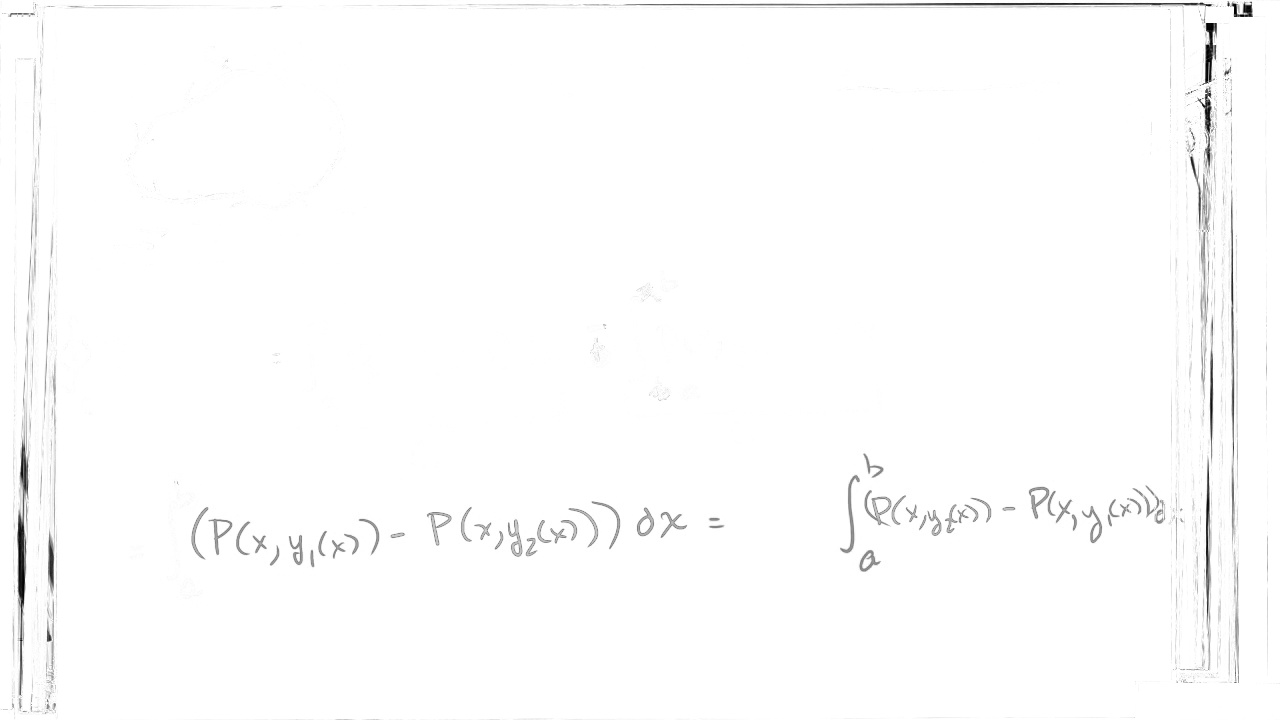 (P(x, y₁(x)) - P(x, y₂(x))) dx = ∫ₐᵇ (P(x, y₂(x)) - P(x, y₁(x))) d